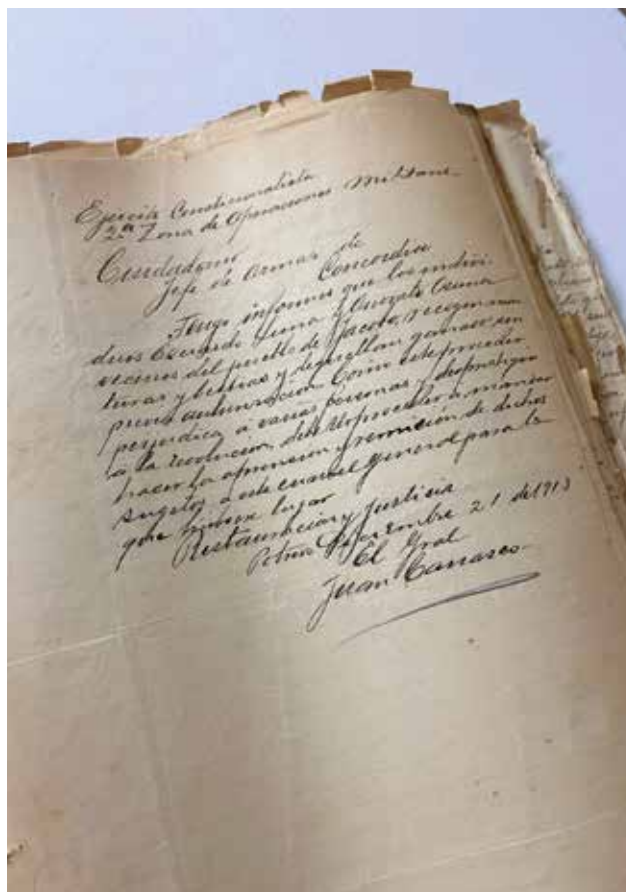 Ejercito Constitucionalista
2ª Zona de Operaciones Militares
Ciudadano
Jefe de Armas de
Concordia
Tengo informes que los indivi-
duos Osuna
vecinos del pueblo de Jacobo, recogen mon
turas y bestias y deguellan ganado sin
previa autorización. Como este proceder
perjudica a varias personas y desprestigia
a la revolucion, debe Ud proceder a mandar
hacer la aprension y remision de dichos
sugetos a este cuartel general para lo
que hubiere lugar
Restauracion y Justicia
21 de 1913
El Gral
Juan Carrasco